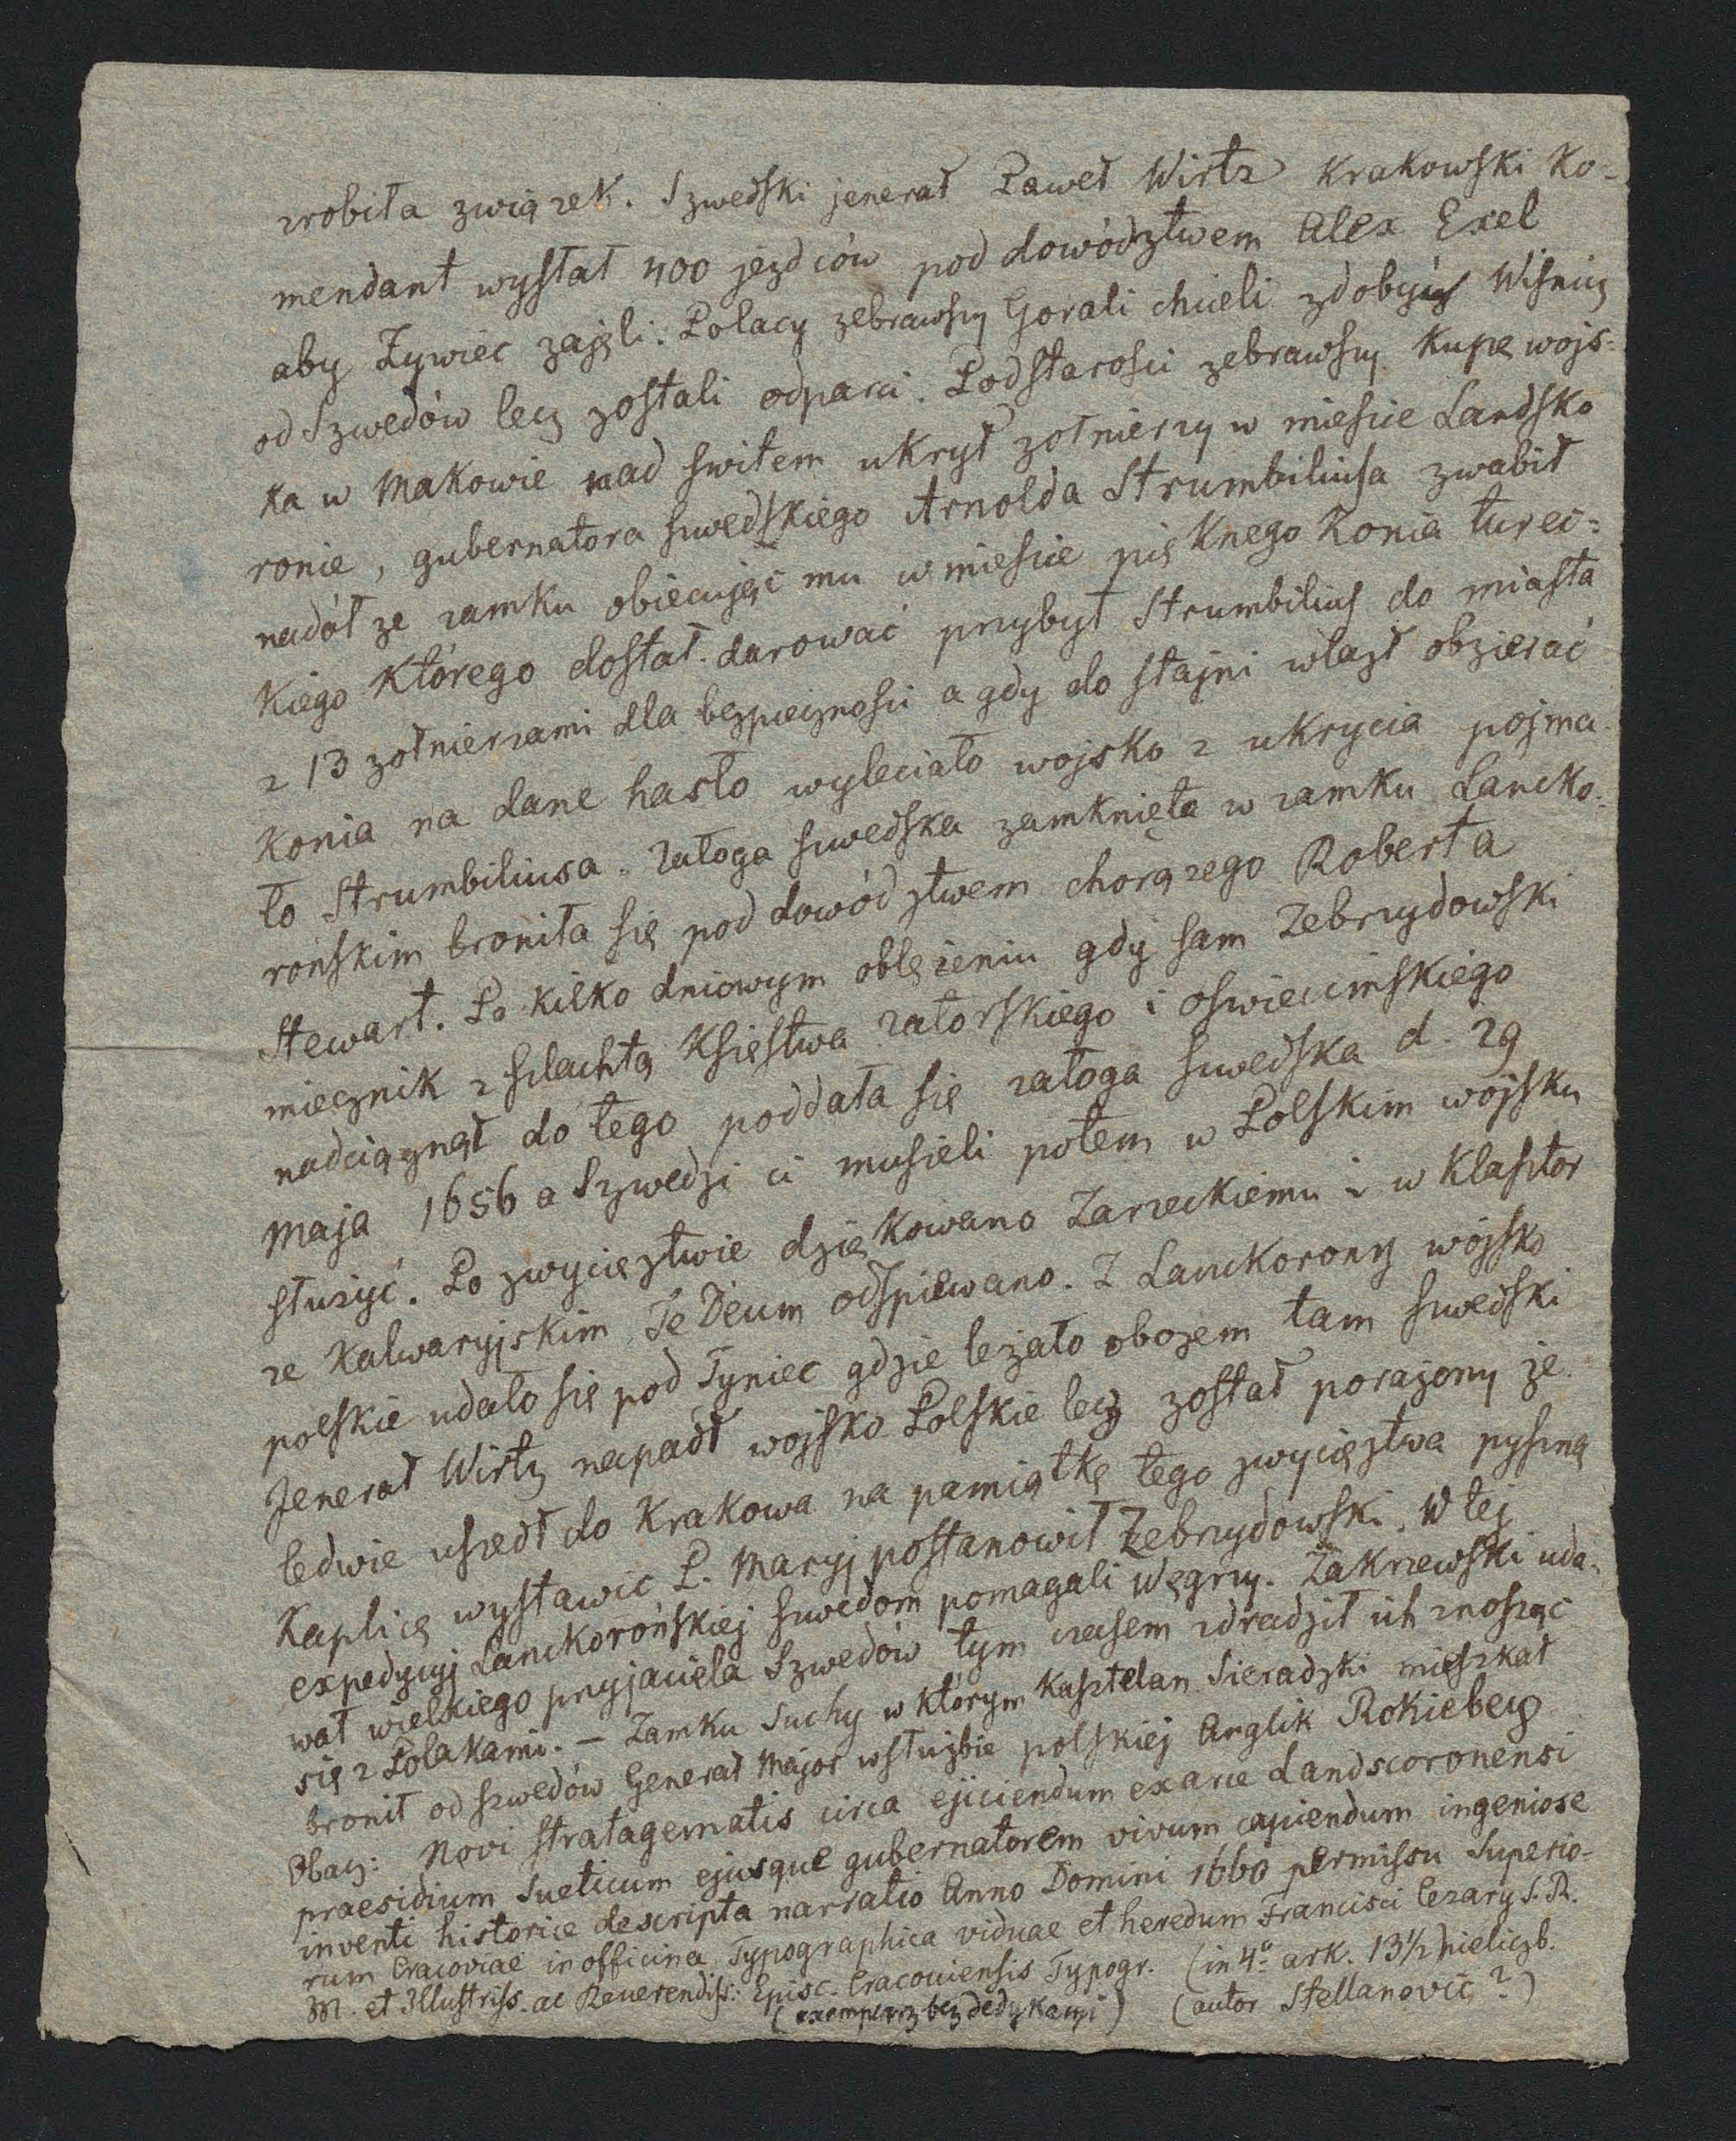 zrobiła związek. Szwedski jenerał Paweł Wirtz Krakowski Ko-
mendant wysłał 400 jezdców pod dowództwem Alex Exel
aby Żywiec zajęli. Polacy zebrawszy Gorali chcieli zdobyć Wisnicz
od Szwedów lecz zostali odparci. Podstarosci zebrawszy Kupę wojs-
ka w Makowie nad switem ukrył zołnierzy w miescie Landsko
ronie, gubernatora szwedskiego Arnolda Strumbiliusa zwabił
nadół ze zamku obiecując mu w miescie pięknego Konia turec=
Kiego Którego dostał darować przybył Strumbilius do miasta
z 13 zołnierzami dla bezpiecznosci a gdy do stajni wlazł obzierać
Konia na dane hasło wyleciało wojsko z ukrycia pojma-
ło Strumbiliusa. Załoga szwedska zamknięta w zamku Lancko-
ronskim broniła się pod dowództwem chorązego Roberta
Stewart. Po kilko dniowym oblęzeniu gdy sam Zebrzydowski
miecznik z szlachtą Księstwa Zatorskiego i oswiecimskiego
nadciągnął do tego poddała się załoga szwedska d. 29
Maja 1656 a Szwedzi ci musieli potem w Polskim wojsku
słuzyć. Po zwycięztwie dziękowano Zarzeckiemu i w Klasztor
ze Kalwaryjskim Te Deum odspiewano. Z Lanckorony wojsko
polskie udało się pod Tyniec gdzie leżało obozem tam szwedski
Jenerał Wirtz napadł wojsko Polskie lecz został porażony że
ledwie uszedł do Krakowa na pamiątkę tego zwycięztwa pyszną
Kaplicę wystawic P. Maryj postanowił Zebrzydowski. W tej
expedycyj Lanckorońskiej szwedom pomagali Węgrzy. Zakrzewski uda-
wał wielkiego przyjaciela Szwedów tym czasem zdradził ich znosząc
się z Polakami. – Zamku Suchy w którym Kasztelan Sieradzki mieszkał
bronił od szwedów Generał Major w służbie polskiej Anglik Rokiebey
Obacz: Novi stratagematis circa ejiciendum ex arce Landscoronensi
praesidium Sueticum ejusque gubernatorem vivum capiendum ingeniose
inventi historice descripta narratio Anno Domini 1660 permissu Superio-
rum Cracoviae in officina Typographica viduae et heredum Francisci Cezary S. R.
M. et Illustriss. ac Reverendiss: Episc. Cracoviensis Typogr. (in 4º ark. 13½ nieliczb.
(exemplarz bez dedykacyi) (autor Stellanovic ?)